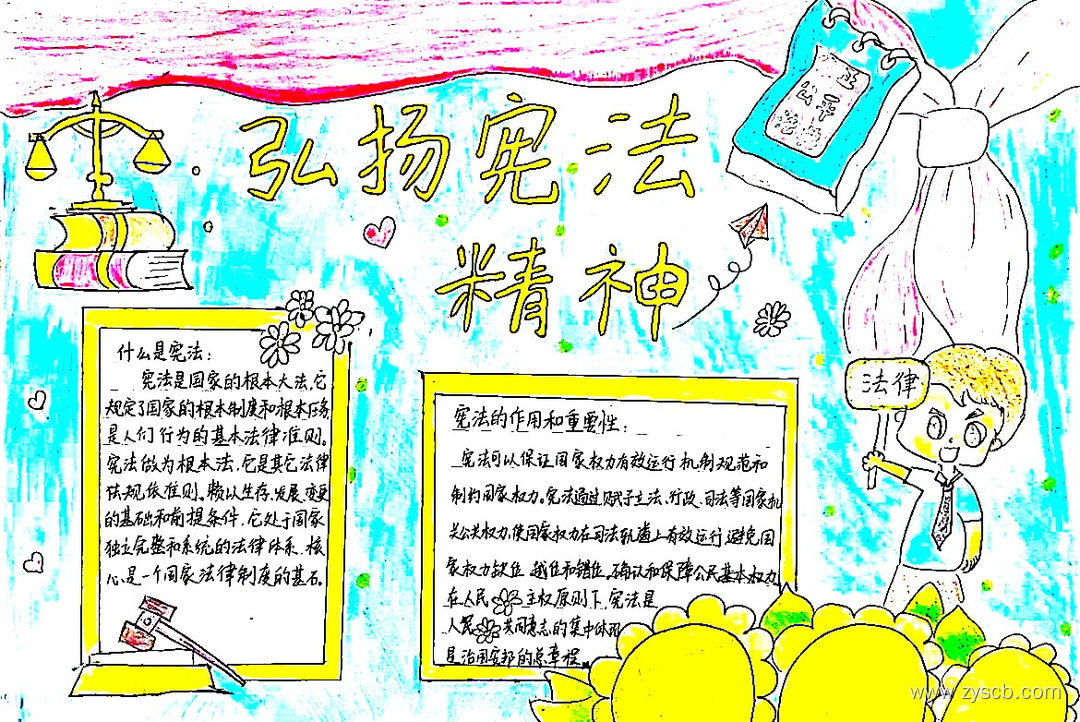 弘扬宪法
精神
公平
法律
什么是宪法：
宪法是国家的根本大法，它
规定了国家的根本制度和根本任务
是人们行为的基本法律准则。
宪法做为根本法，它是其它法律
法规依准则。赖以生存、发展、变更
的基础和前提条件，它处于国家
独立完整和系统的法律体系，核
心，是一个国家法律制度的基石。
宪法的作用和重要性：
宪法可以保证国家权力有效运行机制规范和
制约国家权力。宪法通过赋予立法、行政、司法等国家机
关公共权力，使国家权力在司法轨道上有效运行避免国
家权力缺位，越位和错位。确认和保障公民基本权力
在人民主权原则下，宪法是
人民共同意志的集中体现
是治国安邦的总章程。
www.zyscb.com